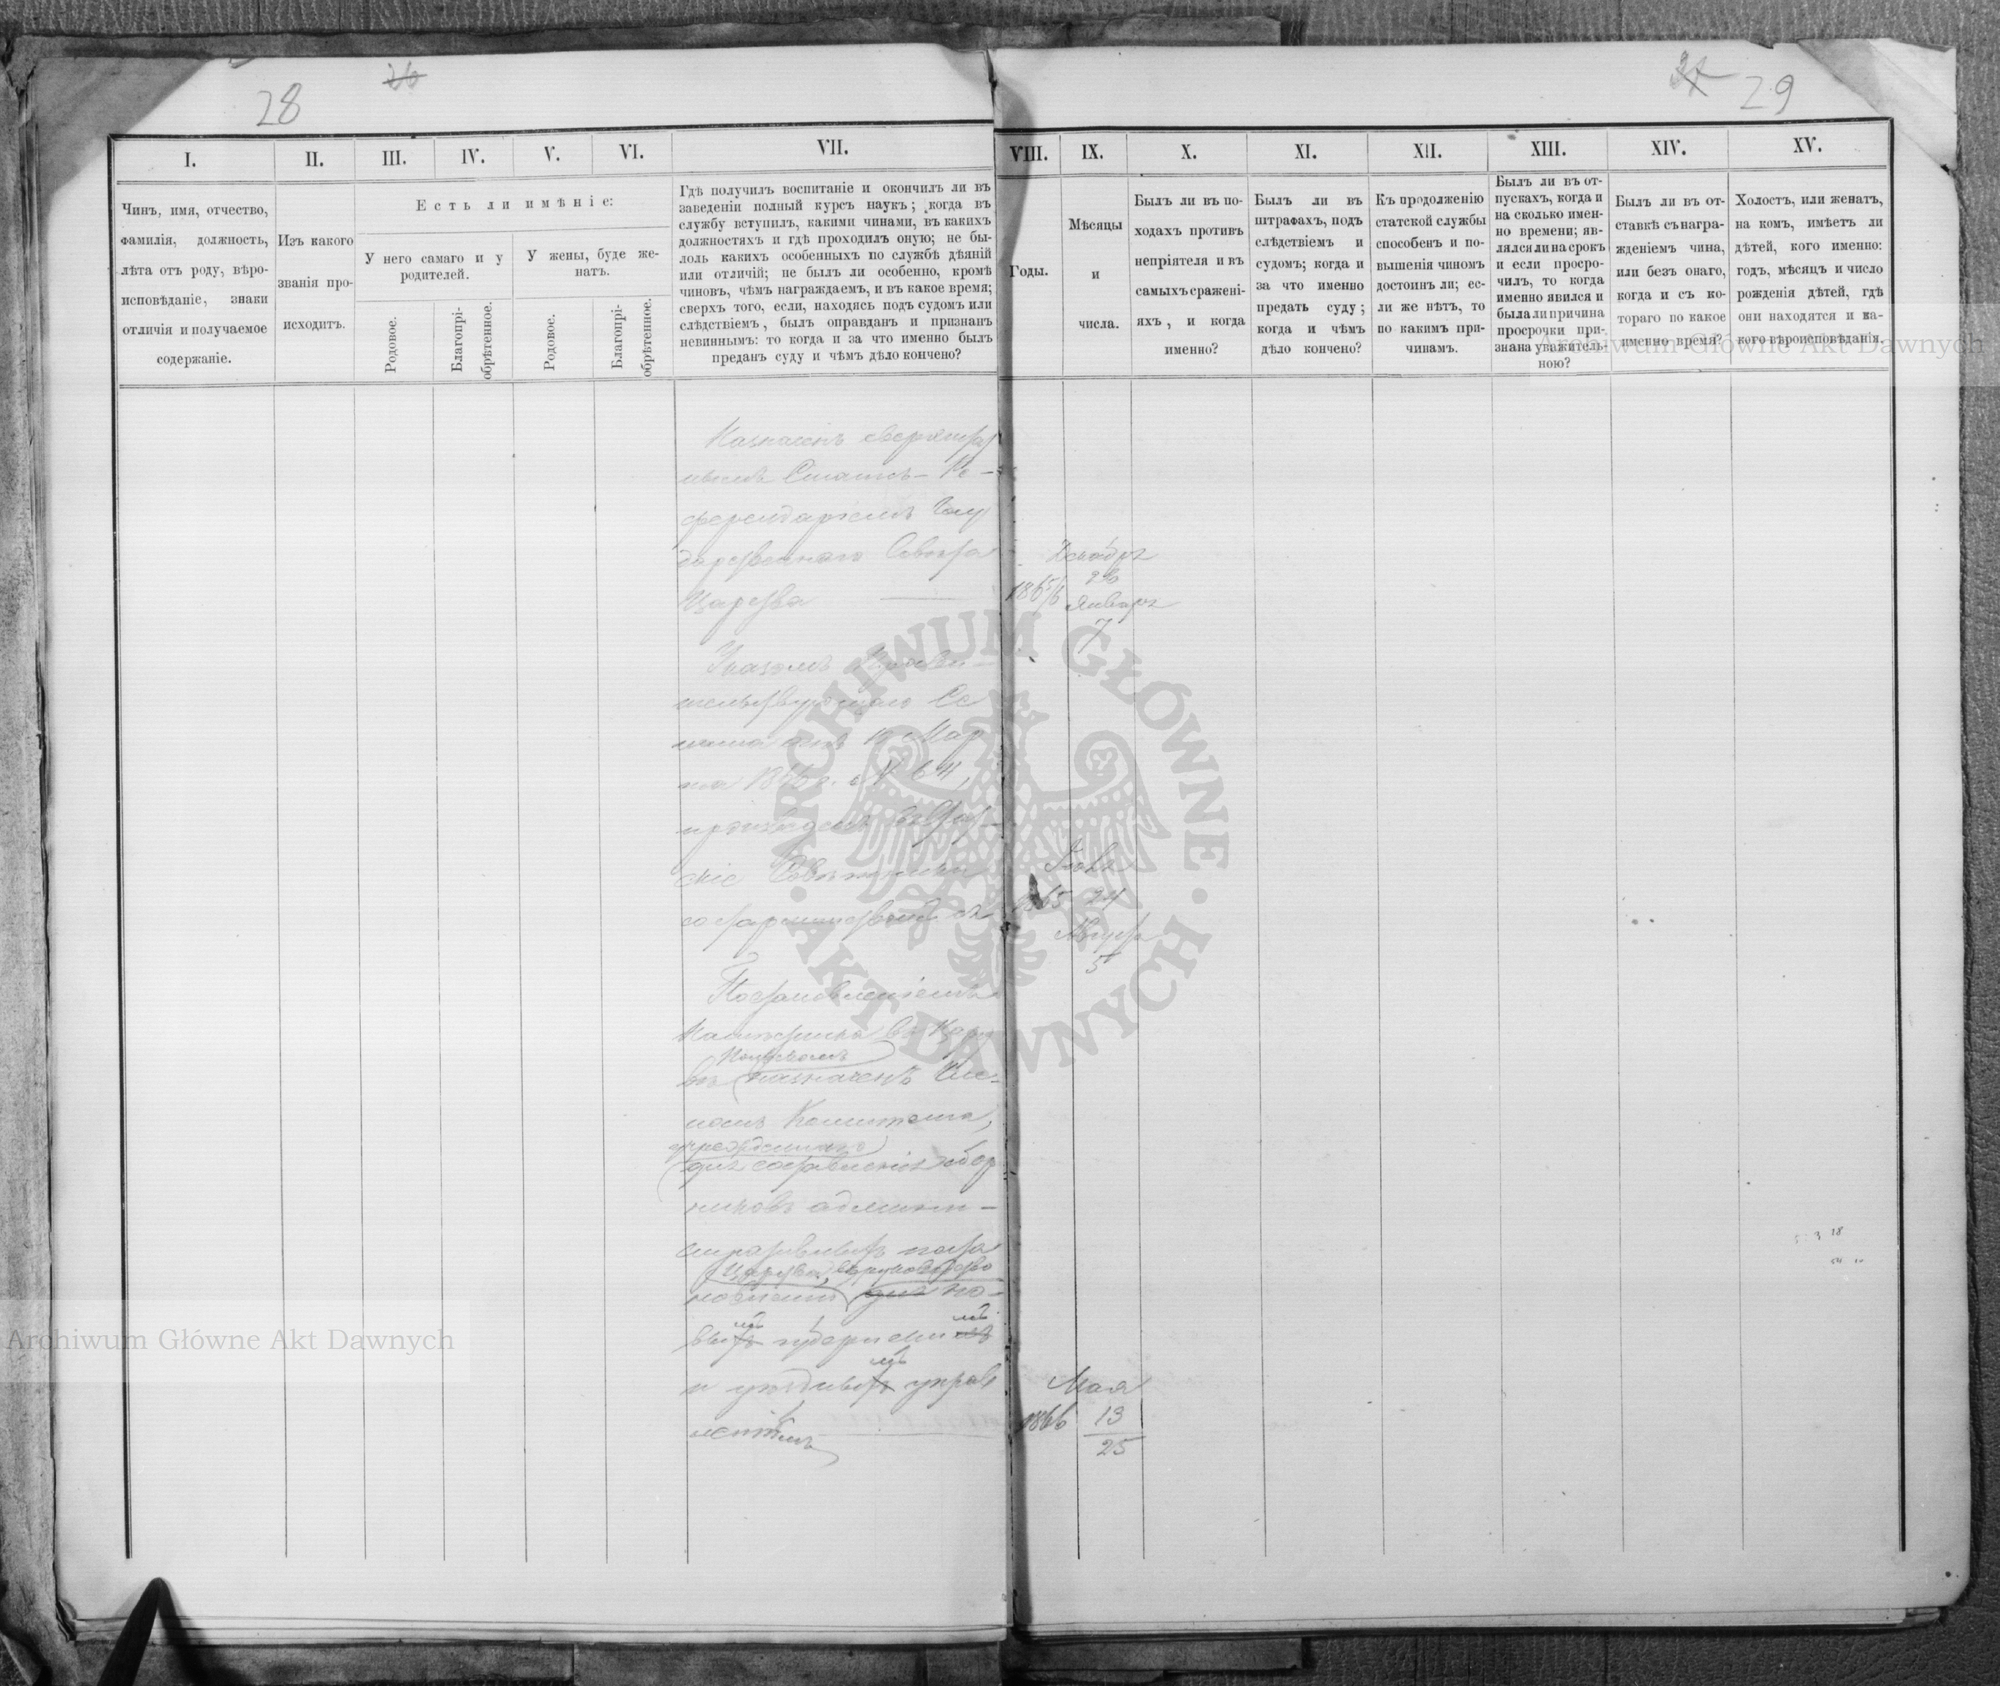 28
29
I.
II.
III.
IV.
V.
VI.
VII.
VIII.
IX.
X.
XI.
XII.
XIII.
XIV.
XV.
Чинъ, имя, отчество,
фамилія, должность,
лѣта отъ роду, вѣро-
исповѣданіе, знаки
отличія и получаемое
содержаніе.
Изъ какого
званія про-
исходитъ.
Есть ли имѣніе:
У него самаго и у
родителей.
У жены, буде же-
натъ.
Родовое.
Благопрі-
обрѣтенное.
Родовое.
Благопрі-
обрѣтенное.
Гдѣ получилъ воспитаніе и окончилъ ли въ
заведеніи полный курсъ наукъ; когда въ
службу вступилъ, какими чинами, въ какихъ
должностяхъ и гдѣ проходилъ оную; не бы-
лоль какихъ особенныхъ по службѣ дѣяній
или отличій; не былъ ли особенно, кромѣ
чиновъ, чѣмъ награждаемъ, и въ какое время;
сверхъ того, если, находясь подъ судомъ или
слѣдствіемъ, былъ оправданъ и признанъ
невиннымъ: то когда и за что именно былъ
преданъ суду и чѣмъ дѣло кончено?
Годы.
Мѣсяцы
и
числа.
Былъ ли въ по-
ходахъ противъ
непріятеля и въ
самыхъ сражені-
яхъ, и когда
именно?
Былъ ли въ
штрафахъ, подъ
слѣдствіемъ и
судомъ; когда и
за что именно
преданъ суду;
когда и чѣмъ
дѣло кончено?
Къ продолженію
статской службы
способенъ и по-
вышенія чиномъ
достоинъ ли; ес-
ли же нѣтъ, то
по какимъ при-
чинамъ.
Былъ ли въ от-
пускахъ, когда и
на сколько имен-
но времени; яв-
лялся ли на срокъ
и если просро-
чилъ, то когда
именно явился и
была ли причина
просрочки при-
знана уважитель-
ною?
Былъ ли въ от-
ставкѣ съ награ-
жденіемъ чина,
или безъ онаго,
когда и съ ко-
тораго по какое
именно время?
Холостъ, или женатъ,
на комъ, имѣетъ ли
дѣтей, кого именно:
годъ, мѣсяцъ и число
рожденія дѣтей, гдѣ
они находятся и ка-
кого вѣроисповѣданія.
Назначенъ сверхштат
нымъ Статсъ-Ре-
ферендаріемъ Госу
дарственнаго Совѣта
Царства
1865/6
Декабря
26
Января
7
Указомъ Прави-
тельствующаго Се
ната отъ 19 Мар
та 1866 г. № 64,
произведенъ въ Стат
скіе Совѣтники
со старшинствомъ съ
1865
24
Августа
5
Постановленіемъ
Намѣстника въ Царст
вѣ Польскомъ назначенъ Чле-
номъ Комитета,
учрежденнаго
для составленія сбор
никовъ админи-
стративныхъ поста
Царства, въ руководство
новленій для но-
вымъ губернскимъ
и уѣзднымъ управ
леніямъ
1866
Мая
13
25
ARCHIWUM GŁÓWNE
AKT DAWNYCH
Archiwum Główne Akt Dawnych
Archiwum Główne Akt Dawnych